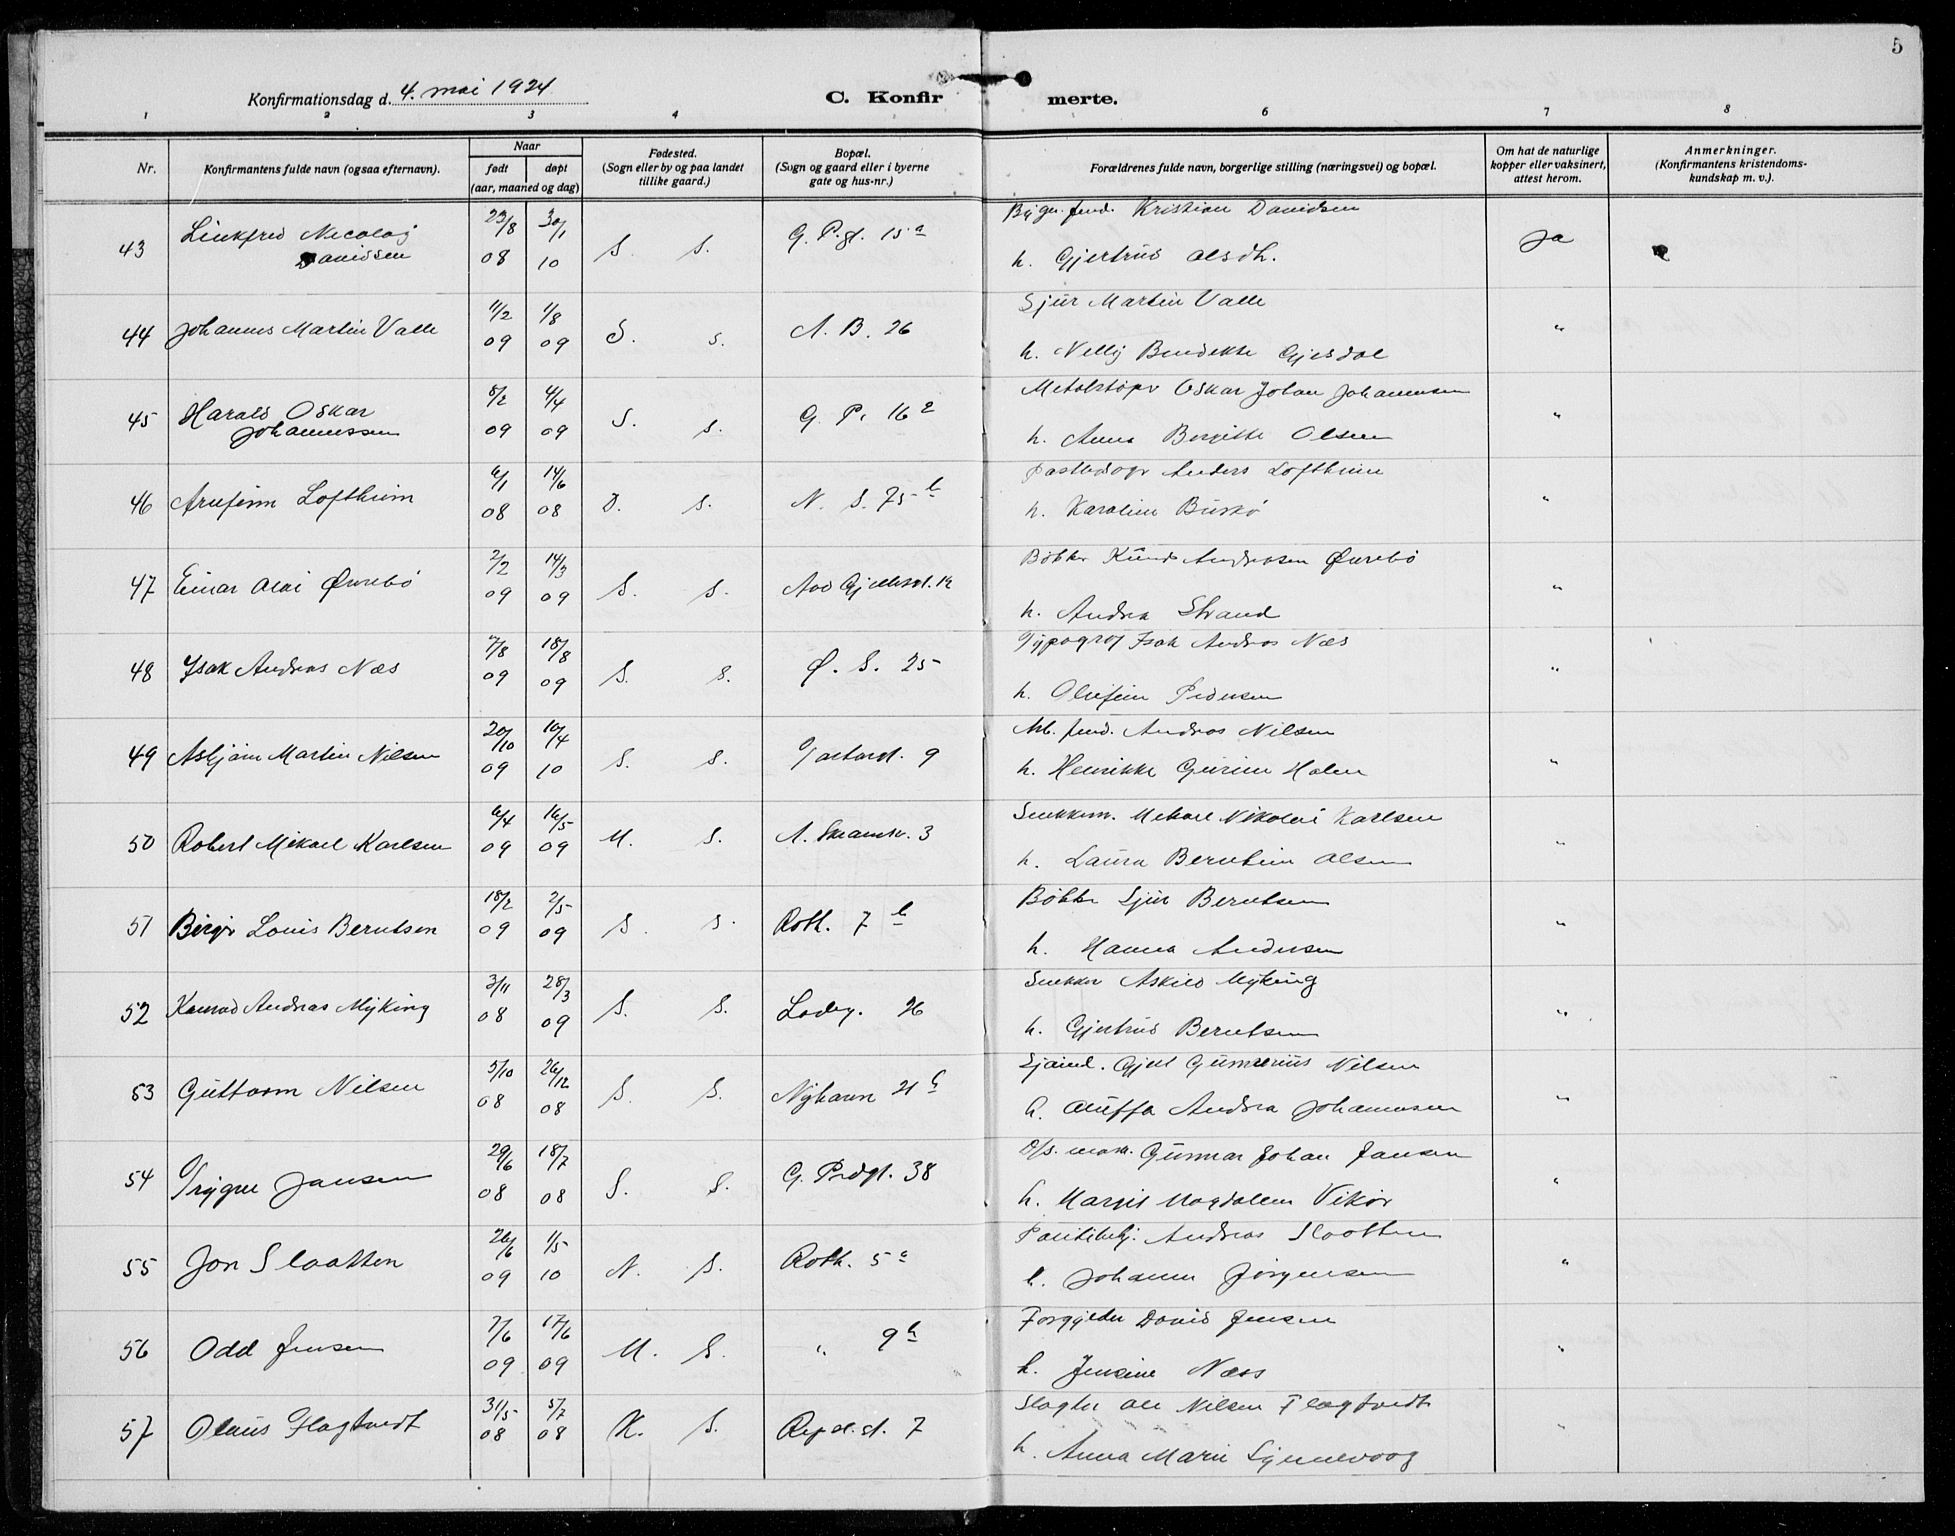 5
Konfirmationsdag d. 4. mai 1924
C. Konfirmerte.
1 2 3 4 6 7 8
Nr. Konfirmantens fulde navn (ogsaa efternavn). Naar født døpt (aar, maaned og dag) Fødested. (Sogn eller by og paa landet tillike gaard.) Bopæl. (Sogn og gaard eller i byerne gate og hus-nr.) Forældrenes fulde navn, borgerlige stilling (næringsvei) og bopæl. Om hat de naturlige kopper eller vaksinert, attest herom. Anmerkninger. (Konfirmantens kristendomskundskap m. v.).
43 Linkfred Nicolay Davidsen 23/8 08 30/1 10 S. S. G. P.gt. 15 a Kristian Davidsen
h. Gjertrud Olsdt. Ja
44 Johannes Martin Valle 11/2 09 1/8 09 S. S. A. B. 26 Sjur Martin Valle
h. Nelly Bendikte Gjesdal "
45 Harald Oskar Johannessen 8/2 09 4/4 09 S. S. G. P. 16 Metalstøper Oskar Johan Johannesen
h. Anna Birgitte Olsen "
46 Arnfinn Loftheim 6/1 08 14/6 08 S. S. N. S. 75 b Anders Loftheim
h. Karoline Buskø "
47 Einar Olai Øvrebø 2/2 09 14/3 09 S. S. Bøkker Knud Andreasen Øvrebø
h. Andrea Strand "
48 Isak Andreas Næs 7/8 09 18/8 09 S. S. Ø. S. 25 Typograf Isak Andreas Næs
h. Olufine Pedersen "
49 Asbjørn Martin Nilsen 20/10 09 10/4 10 S. S. 9 Arb. fmd. Andreas Nilsen
h. Henrikke Gurine Holen "
50 Robert Mikael Karlsen 6/4 09 16/5 09 M. S. 3 Snekkerm. Mikael Nikolai Karlsen
h. Laura Berntine Olsen "
51 Birger Louis Berntsen 18/2 09 2/5 09 S. S. Roth. 7 b Bøkker Sjur Berntsen
h. Hanna Andersen "
52 Konrad Andreas Myking 3/11 08 28/3 09 S. S. Ladeg. 26 Snekker Askild Myking
h. Gjertrud Berntsen "
53 Guttorm Nilsen 5/10 08 26/12 08 S. S. Nyhavn 21 b Sjøml. Gjert Gunnerius Nilsen
h. Andrea Johannesen "
54 Trygve Jansen 29/6 08 18/7 08 S. S. G. Prdgt. 38 D/s. mask. Gunnar Johan Jansen
h. Margit Magdalena Vikør "
55 Jon Slaatten 26/6 09 1/5 10 N. S. Roth. 5 a Andreas Slaatten
h. Johanne Jørgensen "
56 Odd Jensen 7/6 09 17/6 09 M. S. " 9 b Forgylder David Jensen
h. Jensine Næss "
57 Olaus Flagtvedt 31/5 08 5/7 08 K. S. Rep.sl. 7 Slagter Ole Nilsen Flagtvedt
h. Anna Marie Synnevaag "